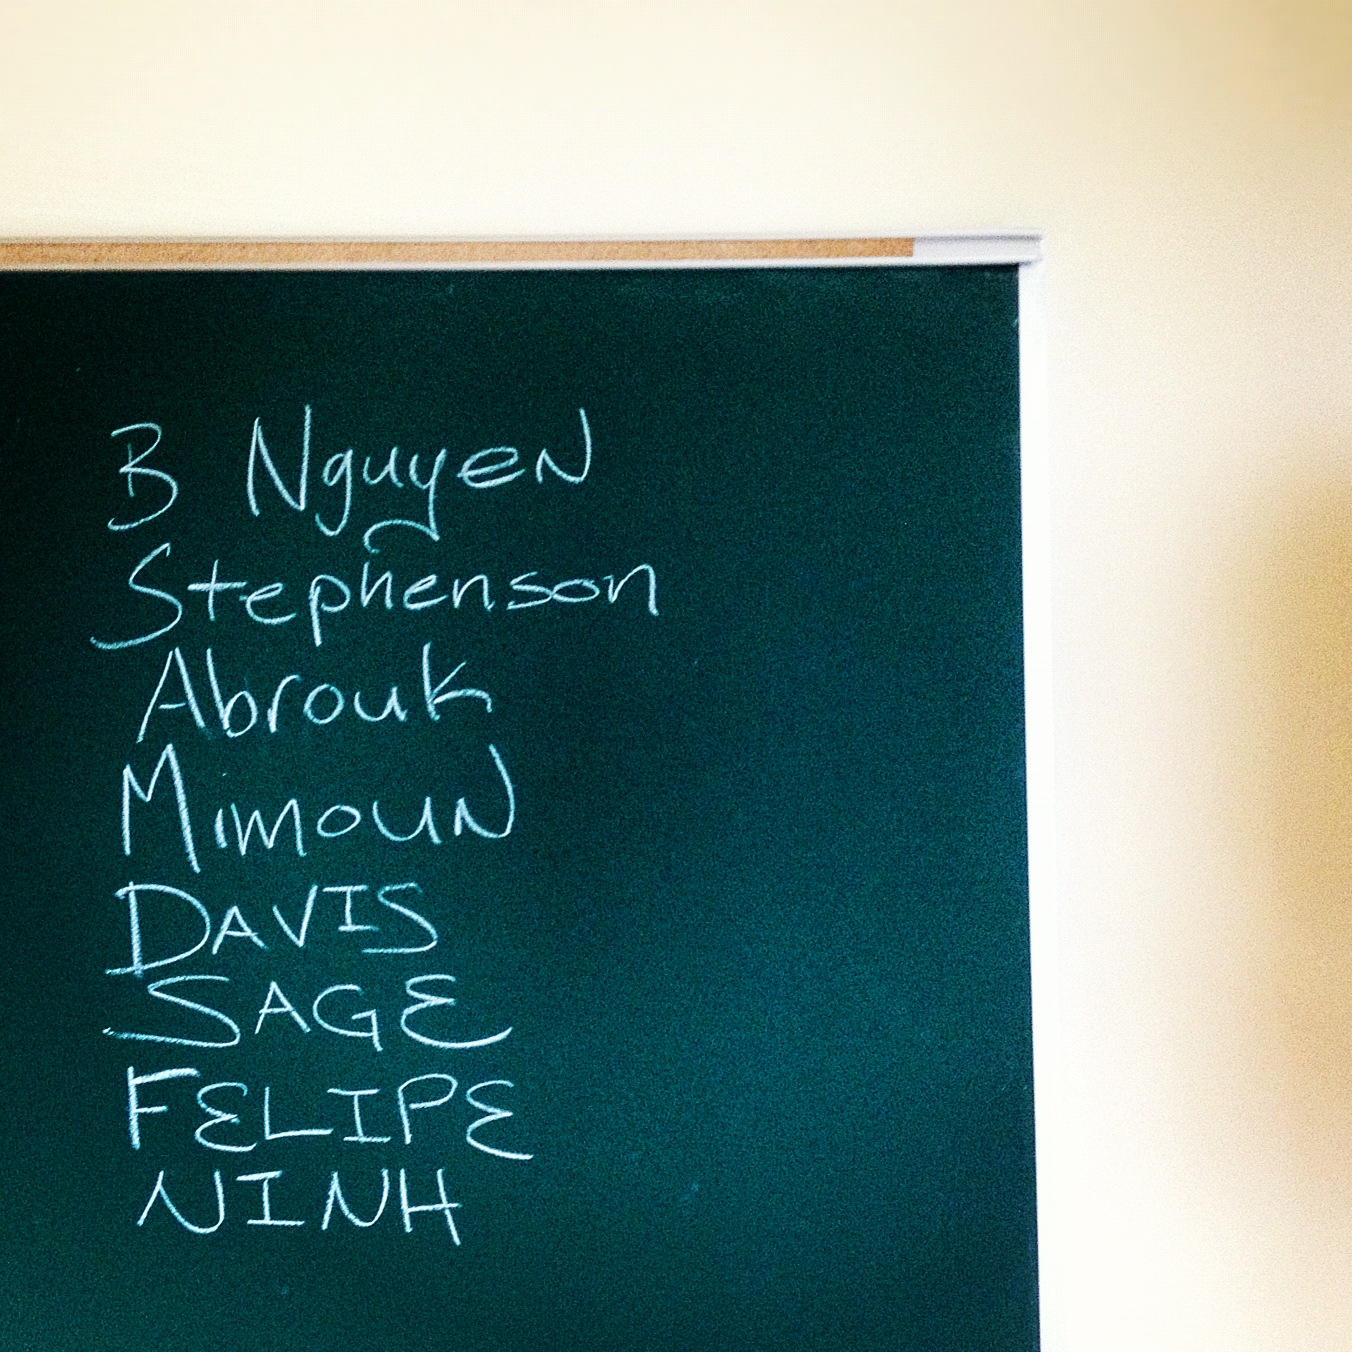 B Nguyen
Stephenson
Abrouk
Mimoun
DAVIS
SAGE
FELIPE
NINH